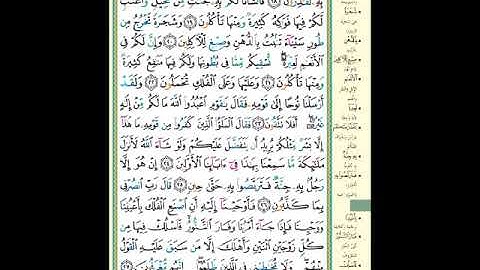 بِهِۦ لَقَٰدِرُونَ ١٨ فَأَنشَأْنَا لَكُم بِهِۦ جَنَّٰتٍ مِّن نَّخِيلٍ وَأَعْنَٰبٍ
لَّكُمْ فِيهَا فَوَٰكِهُ كَثِيرَةٌ وَمِنْهَا تَأْكُلُونَ ١٩ وَشَجَرَةً تَخْرُجُ مِن
طُورِ سَيْنَآءَ تَنۢبُتُ بِٱلدُّهْنِ وَصِبْغٍ لِّلْءَاكِلِينَ ٢٠ وَإِنَّ لَكُمْ فِي
ٱلْأَنْعَٰمِ لَعِبْرَةً نُّسْقِيكُم مِّمَّا فِي بُطُونِهَا وَلَكُمْ فِيهَا مَنَٰفِعُ كَثِيرَةٌ
وَمِنْهَا تَأْكُلُونَ ٢١ وَعَلَيْهَا وَعَلَى ٱلْفُلْكِ تُحْمَلُونَ ٢٢ وَلَقَدْ
أَرْسَلْنَا نُوحًا إِلَىٰ قَوْمِهِۦ فَقَالَ يَٰقَوْمِ ٱعْبُدُوا۟ ٱللَّهَ مَا لَكُم مِّنْ إِلَٰهٍ
غَيْرُهُۥٓ أَفَلَا تَتَّقُونَ ٢٣ فَقَالَ ٱلْمَلَؤُا۟ ٱلَّذِينَ كَفَرُوا۟ مِن قَوْمِهِۦ مَا هَٰذَآ
إِلَّا بَشَرٌ مِّثْلُكُمْ يُرِيدُ أَن يَتَفَضَّلَ عَلَيْكُمْ وَلَوْ شَآءَ ٱللَّهُ لَأَنزَلَ
مَلَٰٓئِكَةً مَّا سَمِعْنَا بِهَٰذَا فِيٓ ءَابَآئِنَا ٱلْأَوَّلِينَ ٢٤ إِنْ هُوَ إِلَّا
رَجُلٌۢ بِهِۦ جِنَّةٌ فَتَرَبَّصُوا۟ بِهِۦ حَتَّىٰ حِينٍ ٢٥ قَالَ رَبِّ ٱنصُرْنِي
بِمَا كَذَّبُونِ ٢٦ فَأَوْحَيْنَآ إِلَيْهِ أَنِ ٱصْنَعِ ٱلْفُلْكَ بِأَعْيُنِنَا
وَوَحْيِنَا فَإِذَا جَآءَ أَمْرُنَا وَفَارَ ٱلتَّنُّورُ فَٱسْلُكْ فِيهَا مِن
كُلٍّ زَوْجَيْنِ ٱثْنَيْنِ وَأَهْلَكَ إِلَّا مَن سَبَقَ عَلَيْهِ ٱلْقَوْلُ
مِنْهُمْ وَلَا تُخَٰطِبْنِي فِي ٱلَّذِينَ ظَلَمُوٓا۟ إِنَّهُم مُّغْرَقُونَ ٢٧